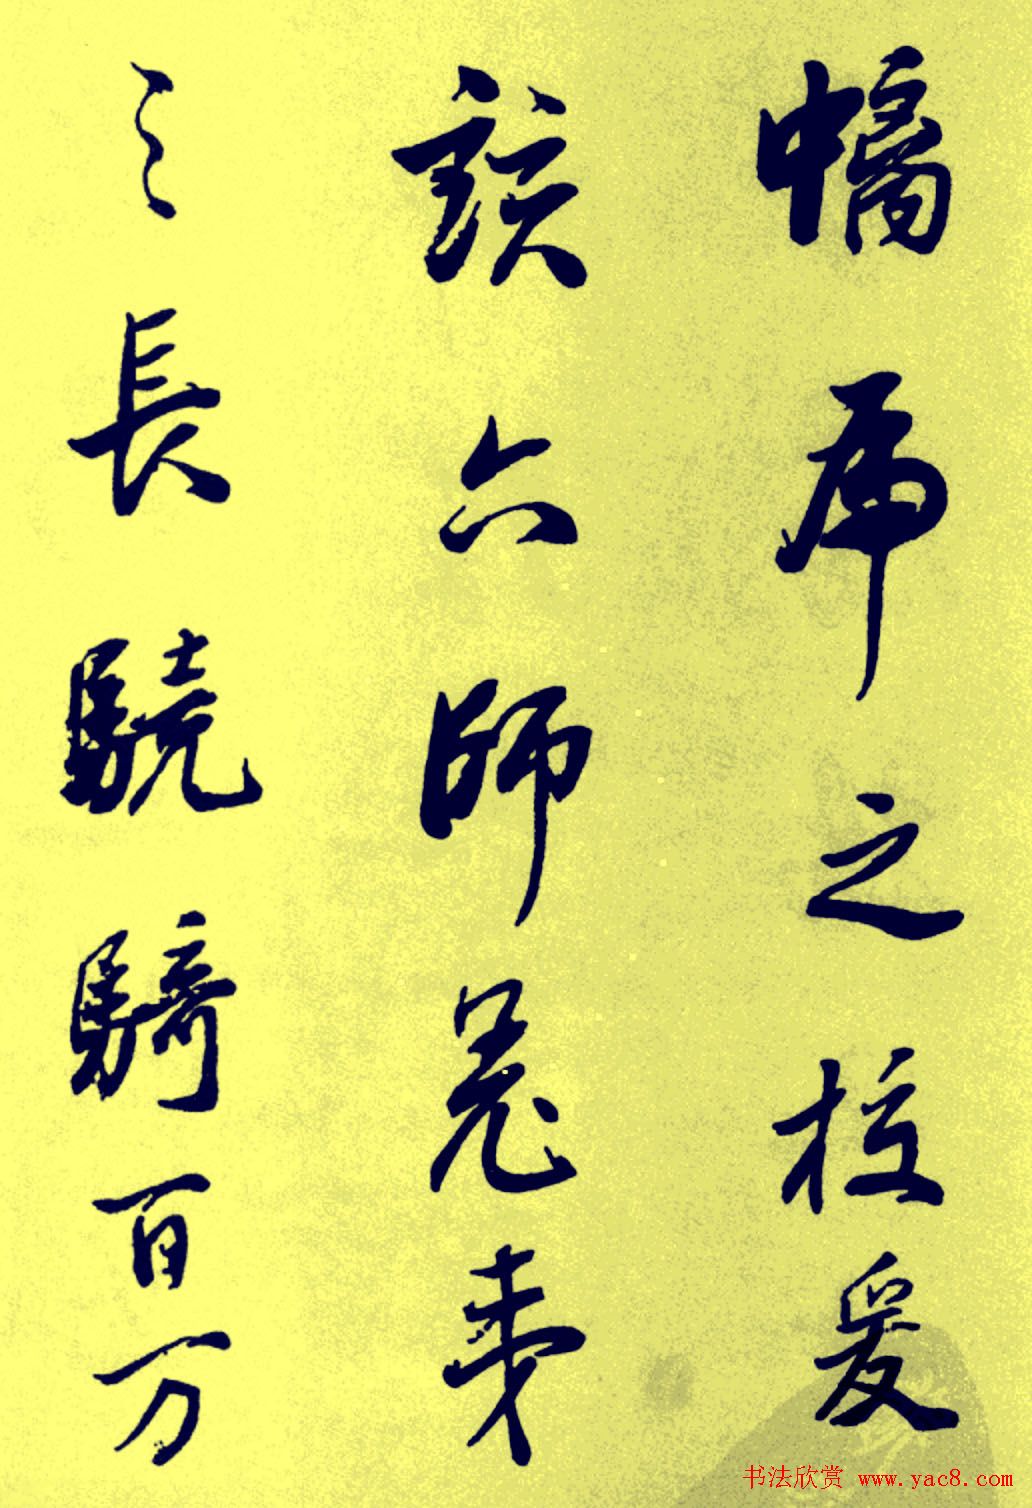 螭虎之校爰
該六師羌夷
之長驍騎百万
书法欣赏 www.yac8.com